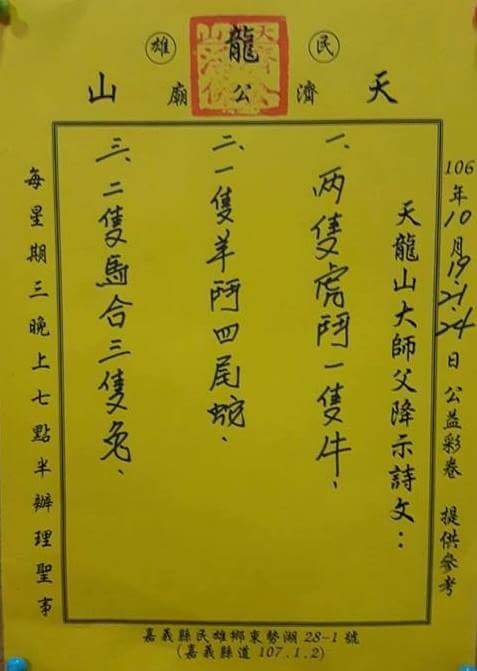 民龍雄
天濟公廟山
106年10月19.21.24日 公益彩卷 提供參考
天龍山大師父降示詩文：
一、两隻虎鬥一隻牛、
二、一隻羊鬥四尾蛇、
三、二隻馬合三隻兔、
每星期三晚上七點半辦理聖事
嘉義縣民雄鄉東勢湖28-1號
(嘉義縣道107.1.2)